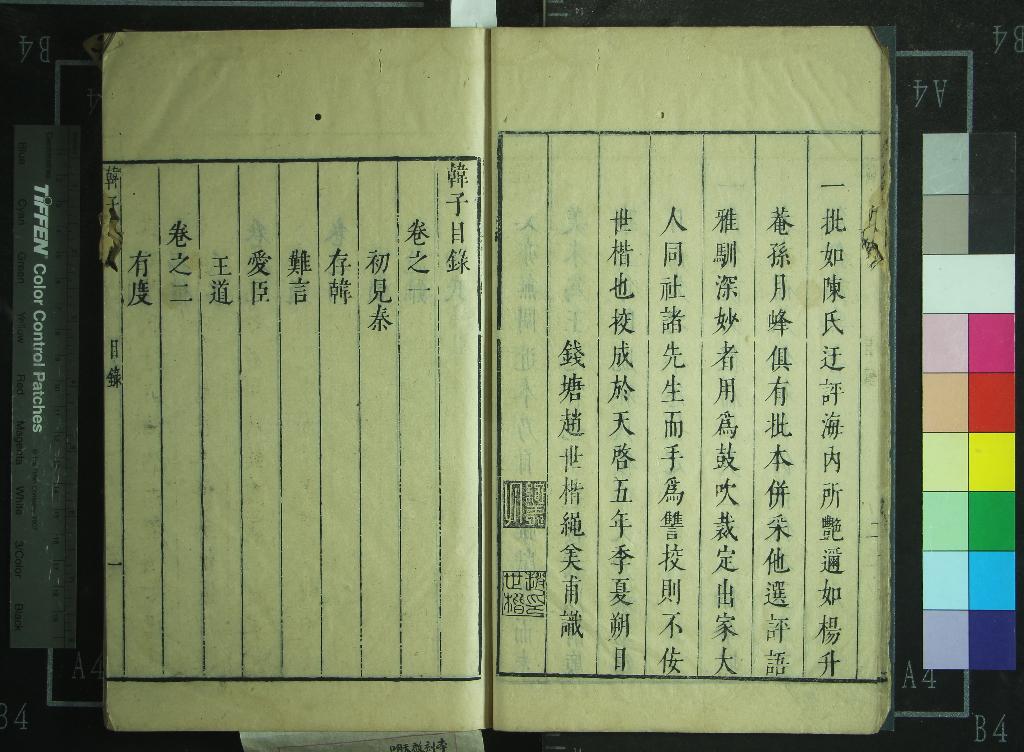 一批如陳氏迂評海內所艷邇如楊升
菴孫月峰俱有批本併采他選評語
雅馴深妙者用爲鼓吹裁定出家大
人同社諸先生而手爲讐挍則不佞
世楷也挍成於天啓五年季夏朔日
錢塘趙世楷繩美甫識
韓子目錄
卷之一
初見秦
存韓
難言
愛臣
王道
卷之二
有度
韓子
目錄
一
二
TIFFEN Color Control Patches
Blue
Cyan
Green
Yellow
Red
Magenta
White
3/Color
Black
A4
B4
A4
B4
A4
B4
A4
B4